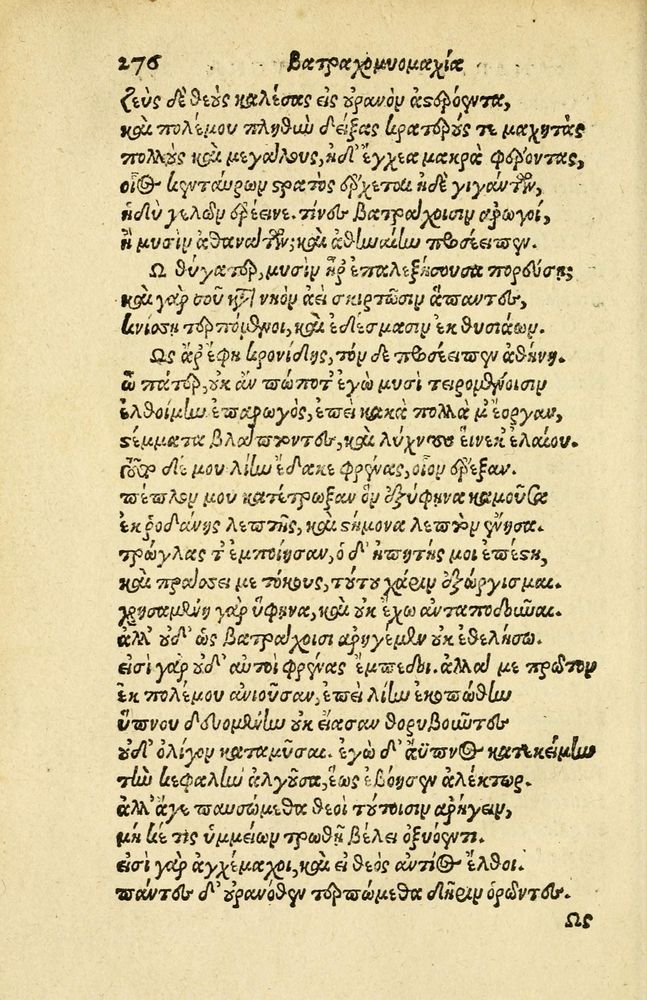 276 Βατραχομυομαχία
Ζεὺς δὲ θεοὺς καλέσας εἰς οὐρανὸν ἀστερόεντα,
καὶ πολέμου πληθὺν δείξας κρατερούς τε μαχητὰς
πολλοὺς καὶ μεγάλους, ἠδ' ἔγχεα μακρὰ φέροντας,
οἷος κενταύρων στρατὸς ἔρχεται ἠδὲ γιγάντων,
ἡδὺ γελῶν ἐρέεινε. τίνες βατράχοισιν ἀρωγοί,
ἢ μυσὶν ἀθανάτων; καὶ ἀθηναίην προσέειπεν.
Ω θύγατερ, μυσὶν ἦρ ἐπαλεξήσουσα πορεύσῃς
καὶ γὰρ σοῦ κατὰ νηὸν ἀεὶ σκιρτῶσιν ἅπαντες,
κνίσσῃ τερπόμενοι, καὶ ἐδέσμασιν ἐκ θυσιάων.
Ως ἄρ' ἔφη κρονίδης, τὸν δὲ προσέειπεν ἀθήνη.
ὦ πάτερ, οὐκ ἄν πώποτ' ἐγὼ μυσὶ τειρομένοισιν
ἐλθοίμην ἐπαρωγός, ἐπεὶ κακὰ πολλά μ' ἔοργαν,
στέμματα βλάπτοντες, καὶ λύχνους εἵνεκ' ἐλαίου.
τοῦτο δέ μου λίην ἔδακε φρένας, οἷον ἔρεξαν.
πέπλον μου κατέτρωξαν ὃν ἐξύφηνα καμοῦσα
ἐκ ῥοδάνης λεπτῆς, καὶ στήμονα λεπτὸν ἔνησα.
τρώγλας τ' ἐμποίησαν, ὁ δ' ἠπητής μοι ἐπέστη,
καὶ πράσσει με τόκους, τούτου χάριν ἐξώργισμαι.
χρησαμένη γὰρ ὕφηνα, καὶ οὐκ ἔχω ἀνταποδοῦναι.
ἀλλ' οὐδ' ὣς βατράχοισι ἀρηγέμεν οὐκ ἐθελήσω.
εἰσὶ γὰρ οὐδ' αὐτοὶ φρένας ἔμπεδοι. ἀλλά με πρῶτον
ἐκ πολέμου ἀνιοῦσαν, ἐπεὶ λίην ἐκοπώθην
ὕπνου δευομένην οὐκ εἴασαν θορυβοῦντες
οὐδ' ὀλίγον καταμῦσαι. ἐγὼ δ' ἄϋπνος κατεκείμην
τὴν κεφαλὴν ἀλγοῦσα, ἕως ἐβόησεν ἀλέκτωρ.
ἀλλ' ἄγε παυσώμεθα θεοὶ τούτοισιν ἀρήγειν,
μή κέ τις ὑμμείων τρωθῇ βέλει ὀξυόεντι.
εἰσὶ γὰρ ἀγχέμαχοι, καὶ εἰ θεὸς ἀντίος ἔλθοι.
πάντες δ' οὐρανόθεν τερπώμεθα δῆριν ὁρῶντες.
Ως